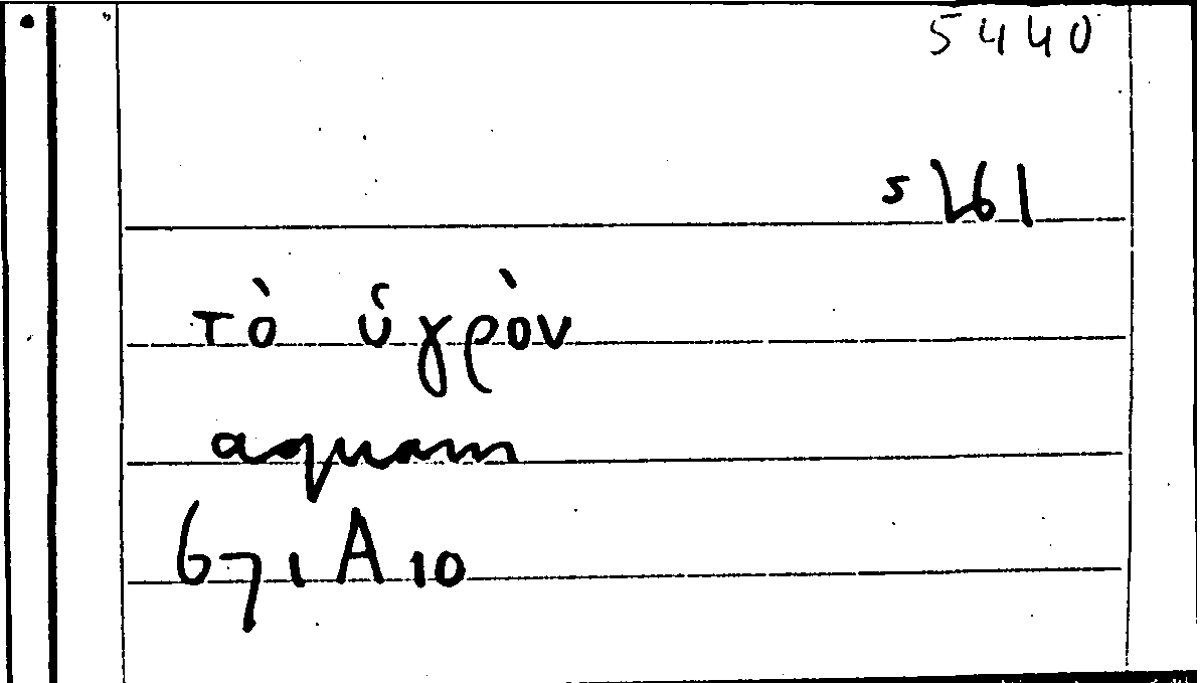 5440
τὸ ὑγρὸν
aquam
671 A 10